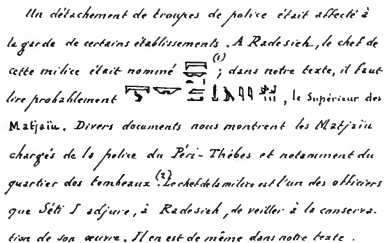 Un détachement de troupes de police était affecté à
la garde de certains établissements. A Radesieh, le chef de
cette milice était nommé (1) ; dans notre texte, il faut
lire probablement , le Supérieur des
Matjaïu. Divers documents nous montrent les Matjaïu
chargés de la police du Péri-Thèbes et notamment du
quartier des tombeaux (2). Le chef de la milice est l'un des officiers
que Séti I adjure, à Radesieh, de veiller à la conserva-
tion de son œuvre. Il en est de même dans notre texte.